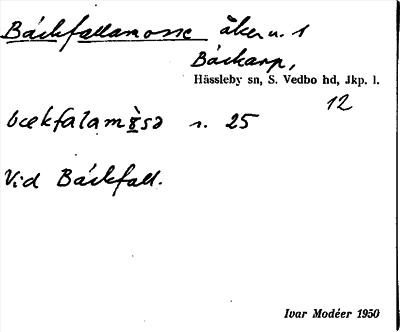 Bäckfallamosse åker u. 1
Bäckarp,
Hässleby sn, S. Vedbo hd, Jkp. l.
12
bækfalamɷ̀sə s. 25
Vid Bäckfall.
Ivar Modéer 1950